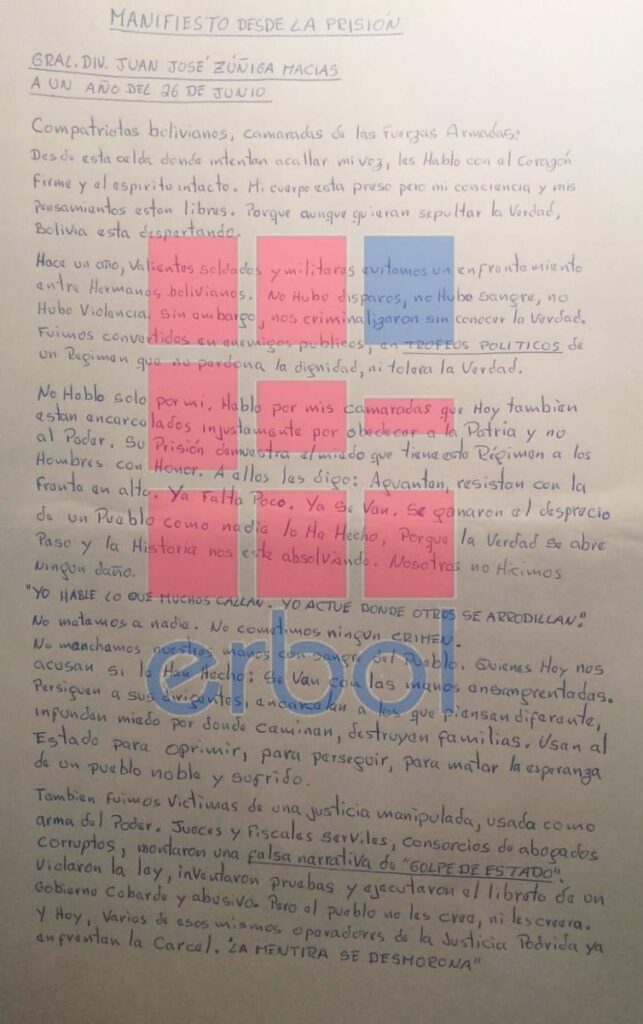 MANIFIESTO DESDE LA PRISIÓN
GRAL. DIV. JUAN JOSÉ ZÚÑIGA MACIAS
A UN AÑO DEL 26 DE JUNIO
Compatriotas bolivianos, camaradas de las Fuerzas Armadas:
Desde esta celda donde intentan acallar mi voz, les Hablo con el Corazón
Firme y el espiritu intacto. Mi cuerpo esta preso pero mi conciencia y mis
Pensamientos estan libres. Porque aunque quieran sepultar la Verdad,
Bolivia esta despertando.
Hace un año, Valientes soldados y militares evitamos un enfrentamiento
entre Hermanos bolivianos. No Hubo disparos, no Hubo Sangre, no
Hubo Violencia. Sin embargo, nos criminalizaron sin conocer la Verdad.
Fuimos convertidos en enemigos publicos, en TROFEOS POLITICOS de
un Regimen que no perdona la dignidad, ni tolera la Verdad.
No Hablo solo por mi. Hablo por mis camaradas que Hoy tambien
estan encarcelados injustamente por obedecer a la Patria y no
al Poder. Su Prisión demuestra el miedo que tiene este Régimen a los
Hombres con Honor. A ellos les digo: Aguanten, resistan con la
frente en alto. Ya Falta Poco. Ya se Van. Se ganaron el desprecio
de un Pueblo como nadie lo Ha Hecho, Porque la Verdad se abre
Paso y la Historia nos esta absolviendo. Nosotros no Hicimos
ningun daño.
"YO HABLE LO QUE MUCHOS CALLAN. YO ACTUE DONDE OTROS SE ARRODILLAN".
No matamos a nadie. No cometimos ningun CRIMEN.
No manchamos nuestras manos con sangre del Pueblo. Quienes Hoy nos
acusan si lo Han Hecho: Se Van con las manos ensangrentadas.
Persiguen a sus dirigentes, encarcelan a los que piensan diferente,
infunden miedo por donde caminan, destruyen familias. Usan al
Estado para oprimir, para perseguir, para matar la esperanza
de un pueblo noble y sufrido.
Tambien fuimos Victimas de una justicia manipulada, usada como
arma del Poder. Jueces y Fiscales Serviles, consorcios de abogados
corruptos, montaron una falsa narrativa de "GOLPE DE ESTADO".
Violaron la ley, inventaron pruebas y ejecutaron el libreto de un
Gobierno Cobarde y abusivo. Pero el pueblo no les cree, ni les creera.
Y Hoy, Varios de esos mismos operadores de la Justicia Podrida ya
enfrentan la Carcel. "LA MENTIRA SE DESMORONA"
erbol